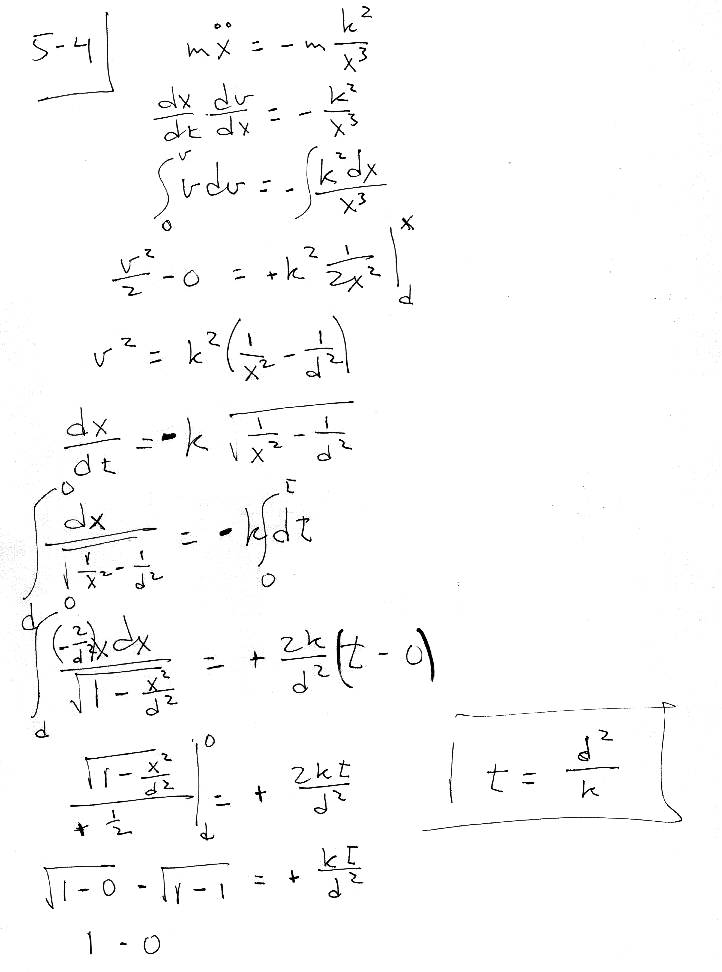 5-4 mẍ = -m k²/x³
dx/dt · dv/dx = - k²/x³
∫₀ᵛ v dv = -∫ k²dx/x³
v²/2 - 0 = +k² 1/2x² |_d^x
v² = k²(1/x² - 1/d²)
dx/dt = -k √(1/x² - 1/d²)
∫_d^0 dx/√(1/x² - 1/d²) = -k∫₀ᵗ dt
∫_d^0 (-2/d²)x dx/√(1 - x²/d²) = + 2k/d² (t - 0)
√(1 - x²/d²)/+½ |_d^0 = + 2kt/d²
t = d²/k
√(1-0) - √(1-1) = + kt/d²
1 - 0